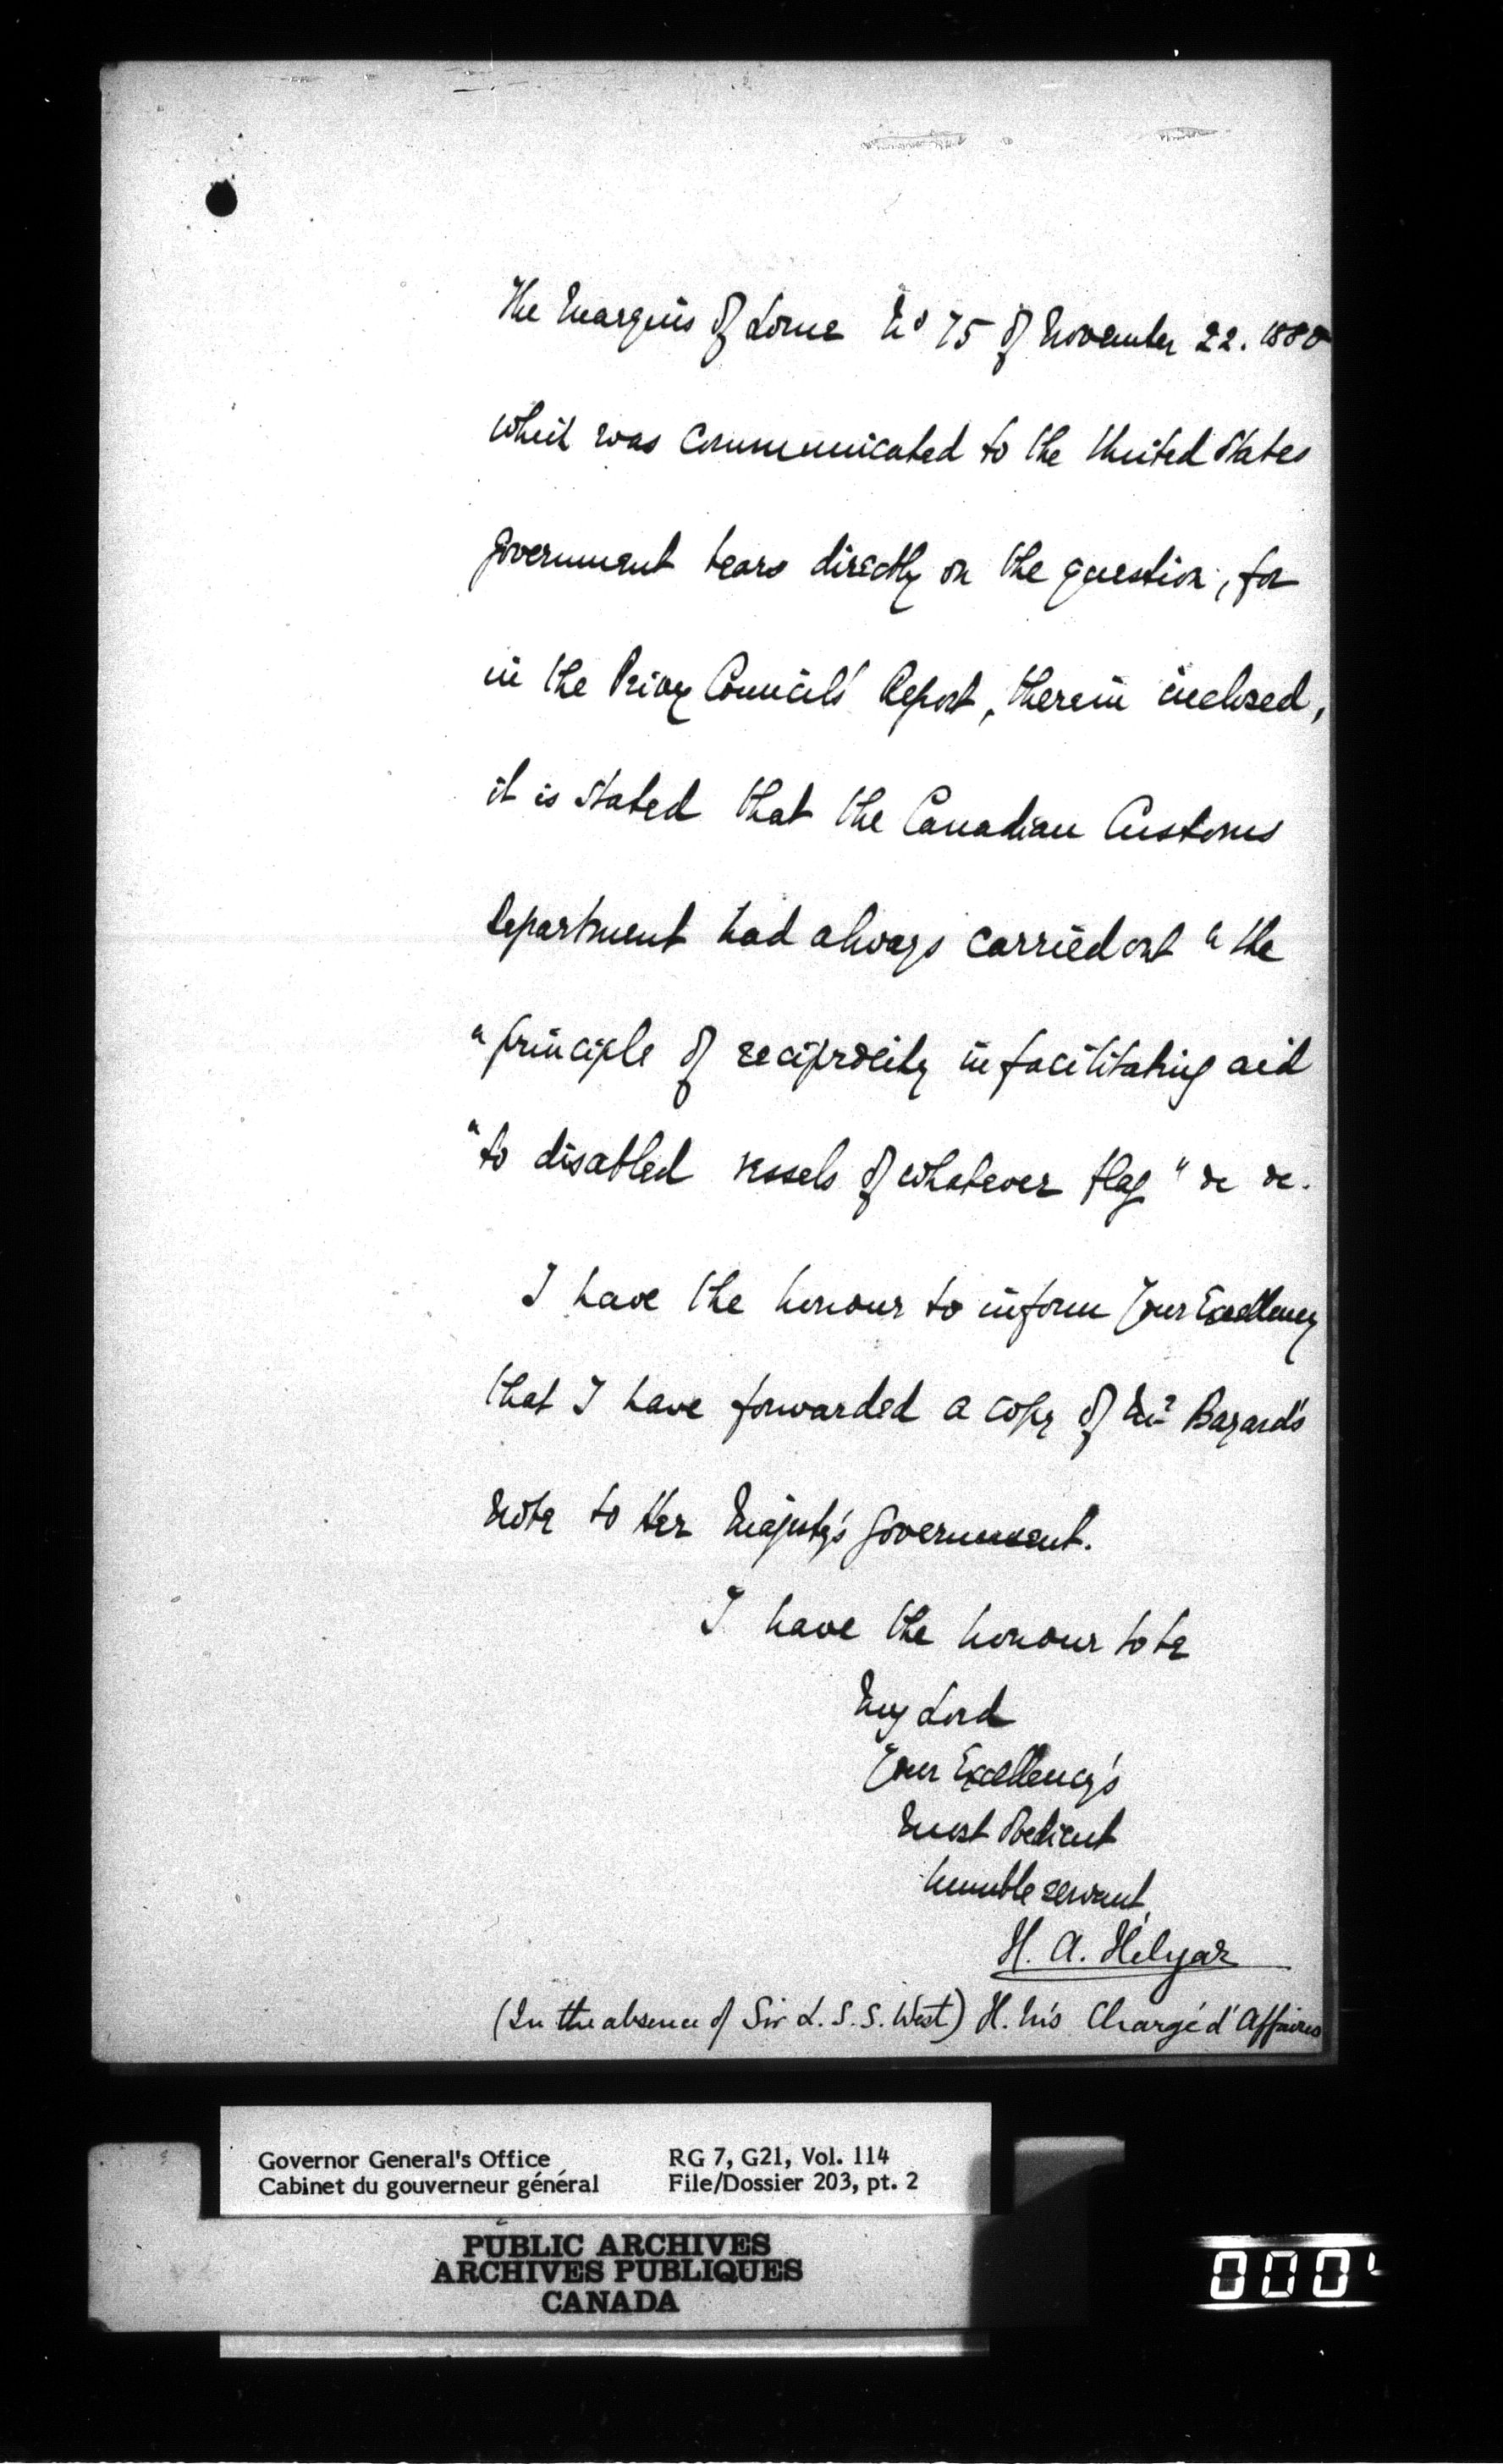 The Marquis of Lorne No 75 of November 22. 1880
which was communicated to the United States
Government bears directly on the question, for
in the Privy Councils' Report, therein inclosed,
it is stated that the Canadian Customs
Department had always carried out "the
"principle of reciprocity in facilitating aid
"to disabled vessels of whatever flag" &c &c.
I have the honour to inform Your Excellency
that I have forwarded a copy of Mr Bayard's
Note to Her Majesty's Government.
I have the honour to be
My Lord
Your Excellency's
Most Obedient
humble servant,
H. A. Helyar
(In the absence of Sir L. S. S. West) H. M's Chargé d'Affaires
Governor General's Office
Cabinet du gouverneur général
RG 7, G21, Vol. 114
File/Dossier 203, pt. 2
PUBLIC ARCHIVES
ARCHIVES PUBLIQUES
CANADA
000